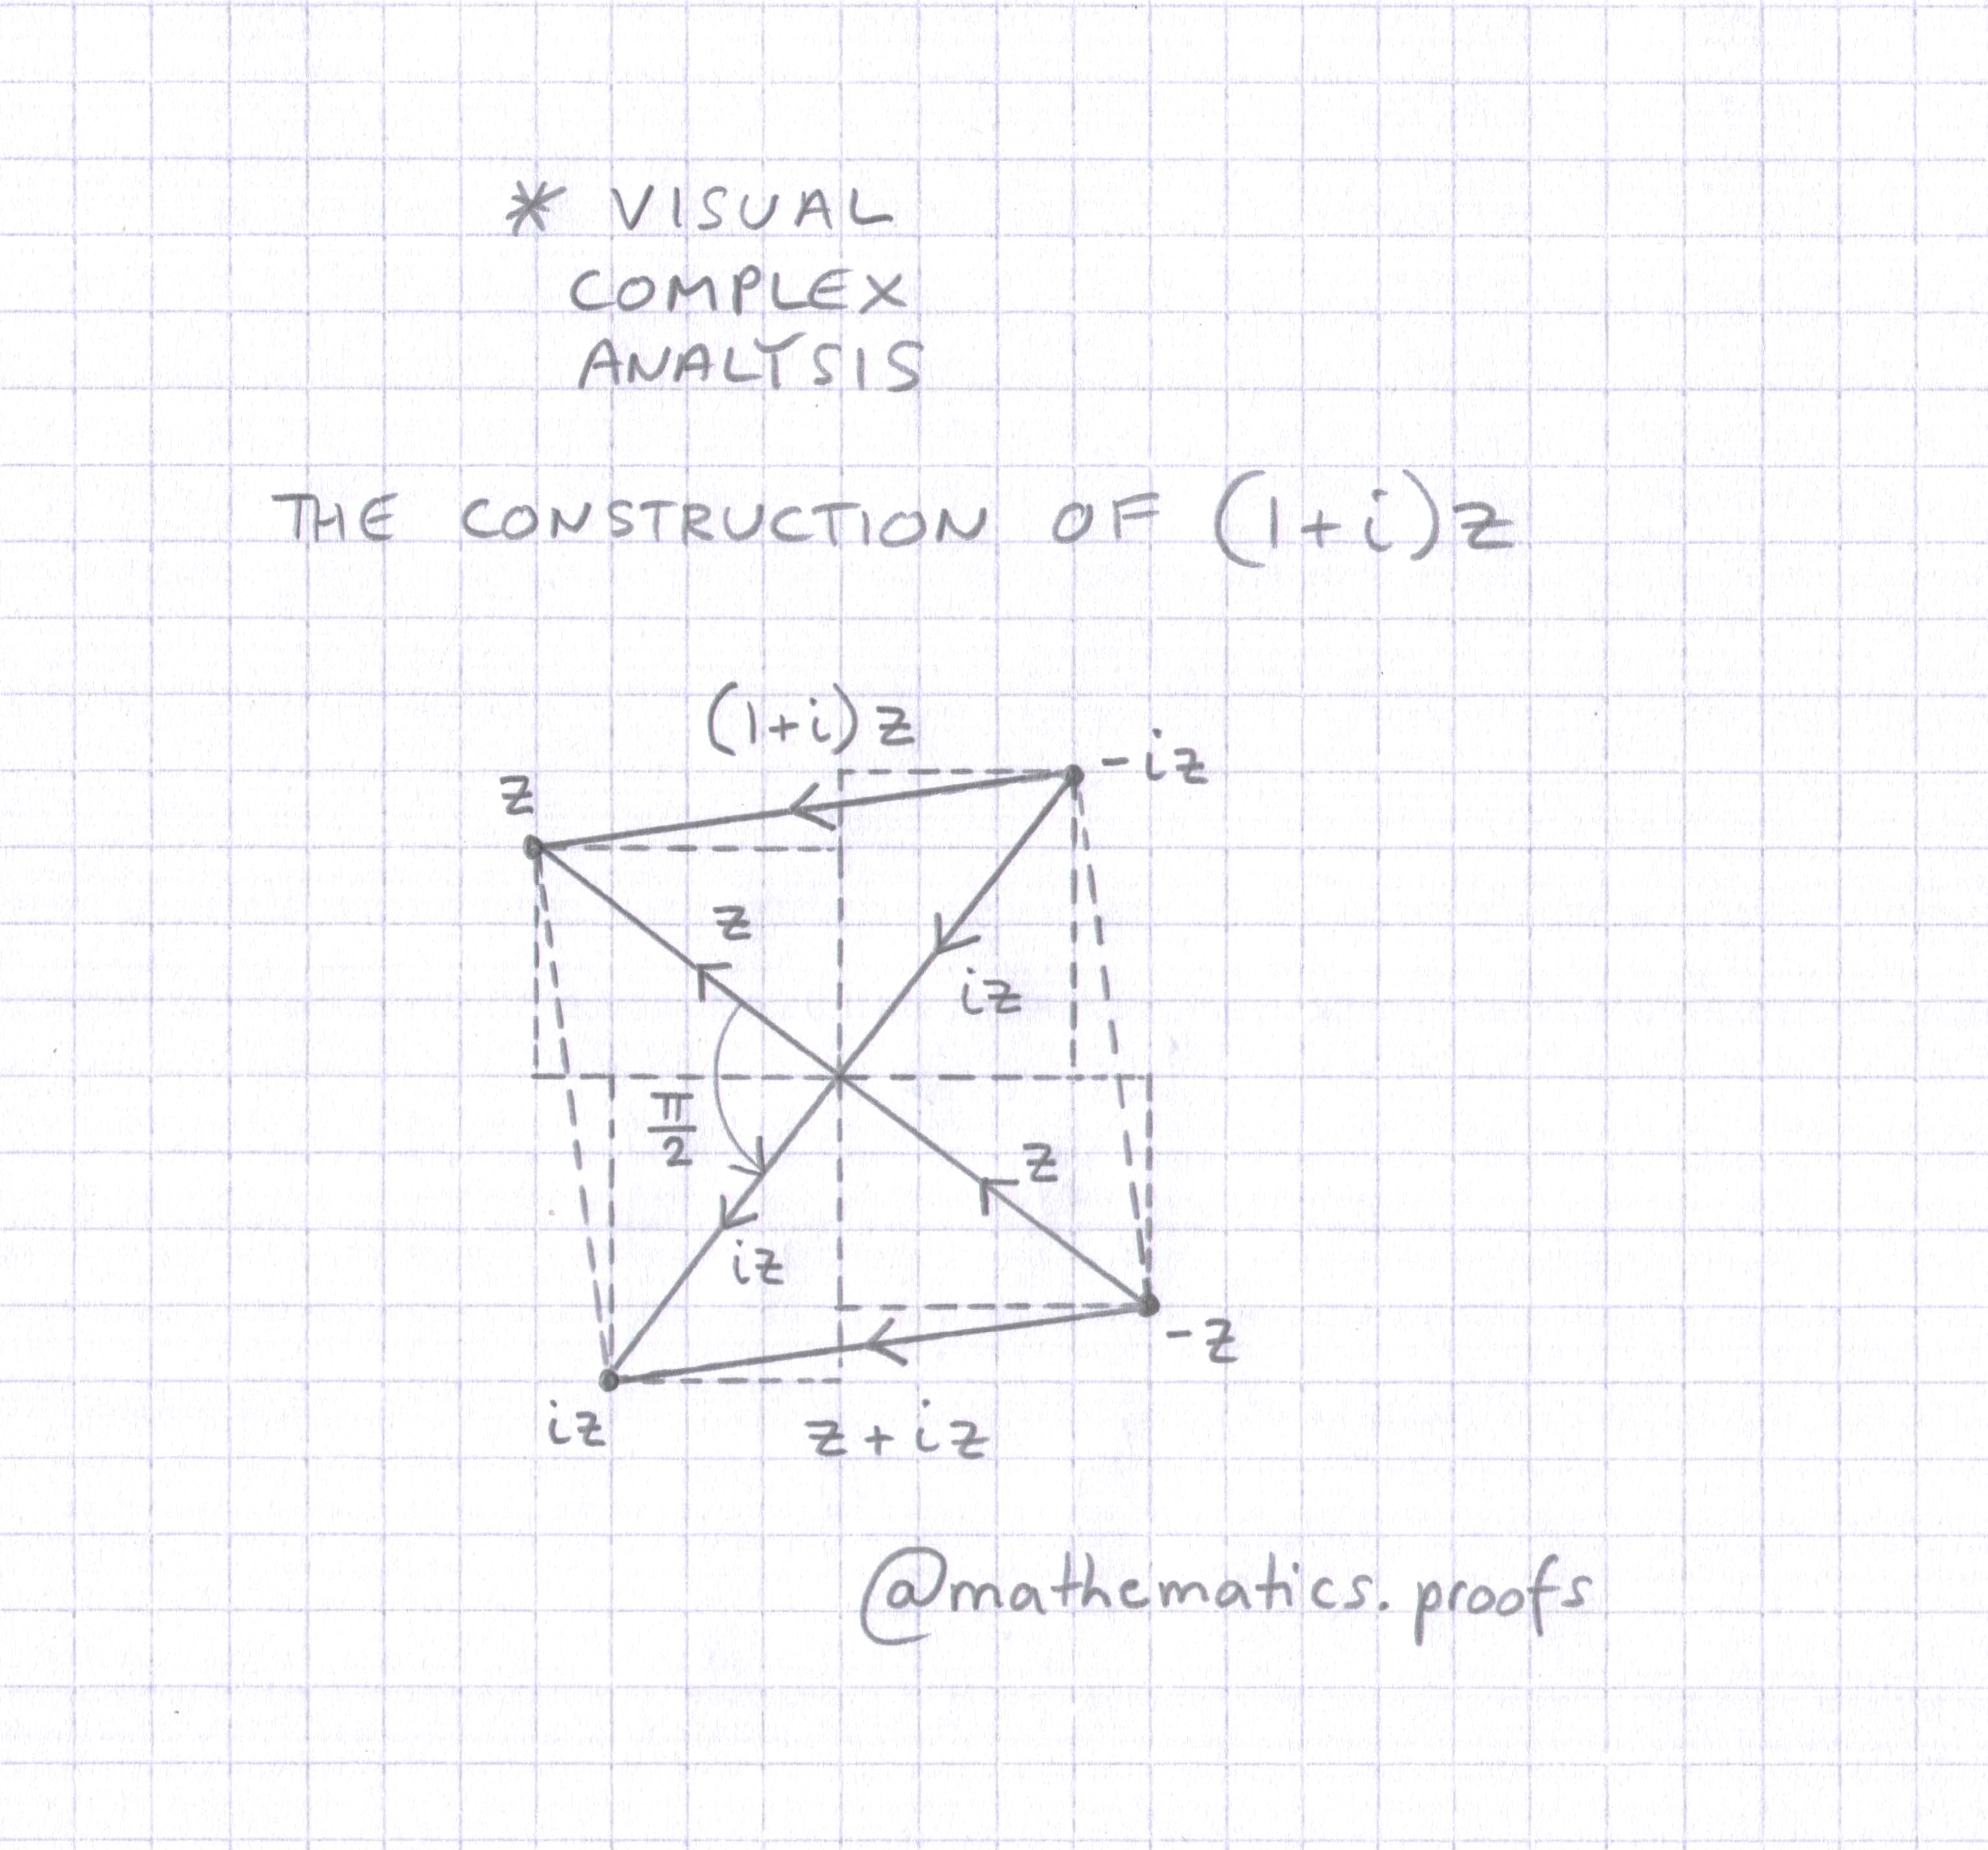 * VISUAL
COMPLEX
ANALYSIS
THE CONSTRUCTION OF (1+i)z
(1+i)z
-iz
z
z
iz
π/2
z
iz
-z
iz
z+iz
@mathematics.proofs